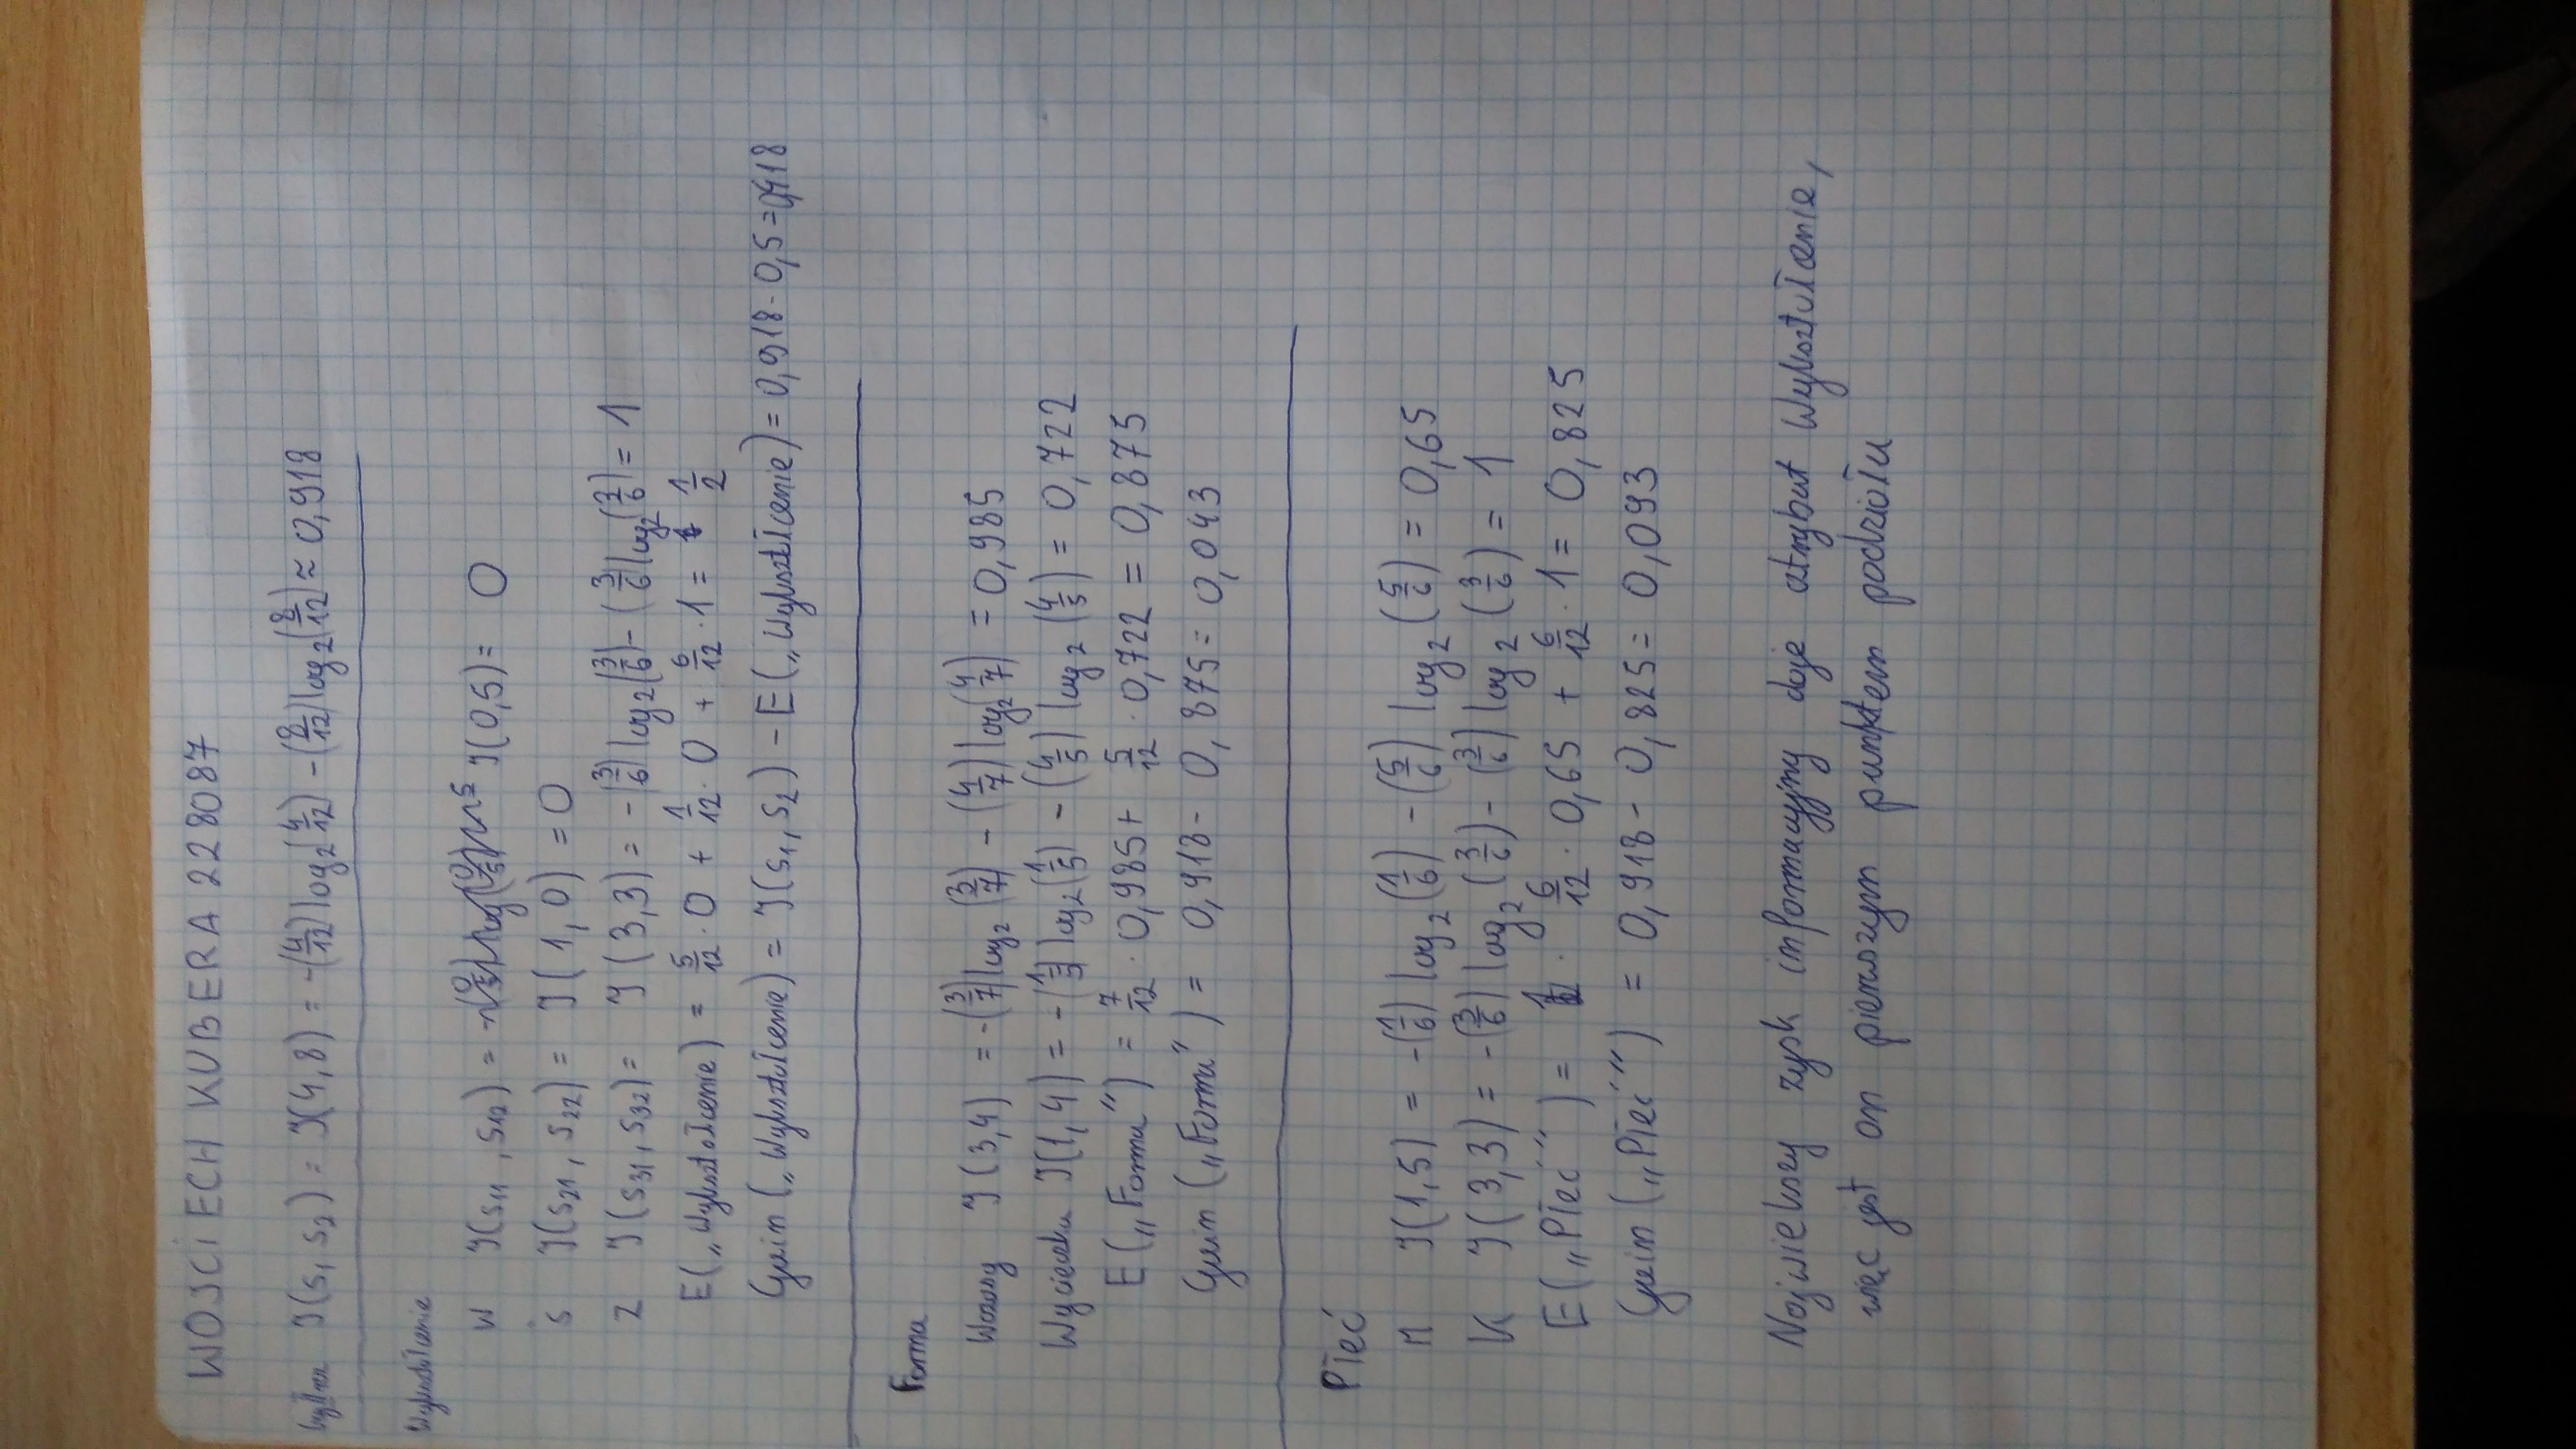 WOJCIECH KUBERA 228087
I(s₁ s₂) = I(4,8) = -(4/12) log₂(4/12) - (8/12) log₂(8/12) ≈ 0,918
Wykształcenie
W I(s₁₁, s₁₂) = I(0,5) = 0
Ś I(s₂₁, s₂₂) = I(1,0) = 0
Z I(s₃₁, s₃₂) = I(3,3) = -(3/6) log₂(3/6) - (3/6) log₂(3/6) = 1
E(„Wykształcenie) = 5/12 · 0 + 1/12 · 0 + 6/12 · 1 = 1/2
Gain („Wykształcenie) = I(s₁, s₂) - E(„Wykształcenie) = 0,918 - 0,5 = 0,418
Forma
Wczasy I(3,4) = -(3/7) log₂(3/7) - (4/7) log₂(4/7) = 0,985
Wycieczka I(1,4) = -(1/5) log₂(1/5) - (4/5) log₂(4/5) = 0,722
E(„Forma”) = 7/12 · 0,985 + 5/12 · 0,722 = 0,875
Gain („Forma”) = 0,918 - 0,875 = 0,043
Płeć
M I(1,5) = -(1/6) log₂(1/6) - (5/6) log₂(5/6) = 0,65
K I(3,3) = -(3/6) log₂(3/6) - (3/6) log₂(3/6) = 1
E(„Płeć”) = 6/12 · 0,65 + 6/12 · 1 = 0,825
Gain („Płeć”) = 0,918 - 0,825 = 0,093
Największy zysk informacyjny daje atrybut Wykształcenie,
więc jest on pierwszym punktem podziału